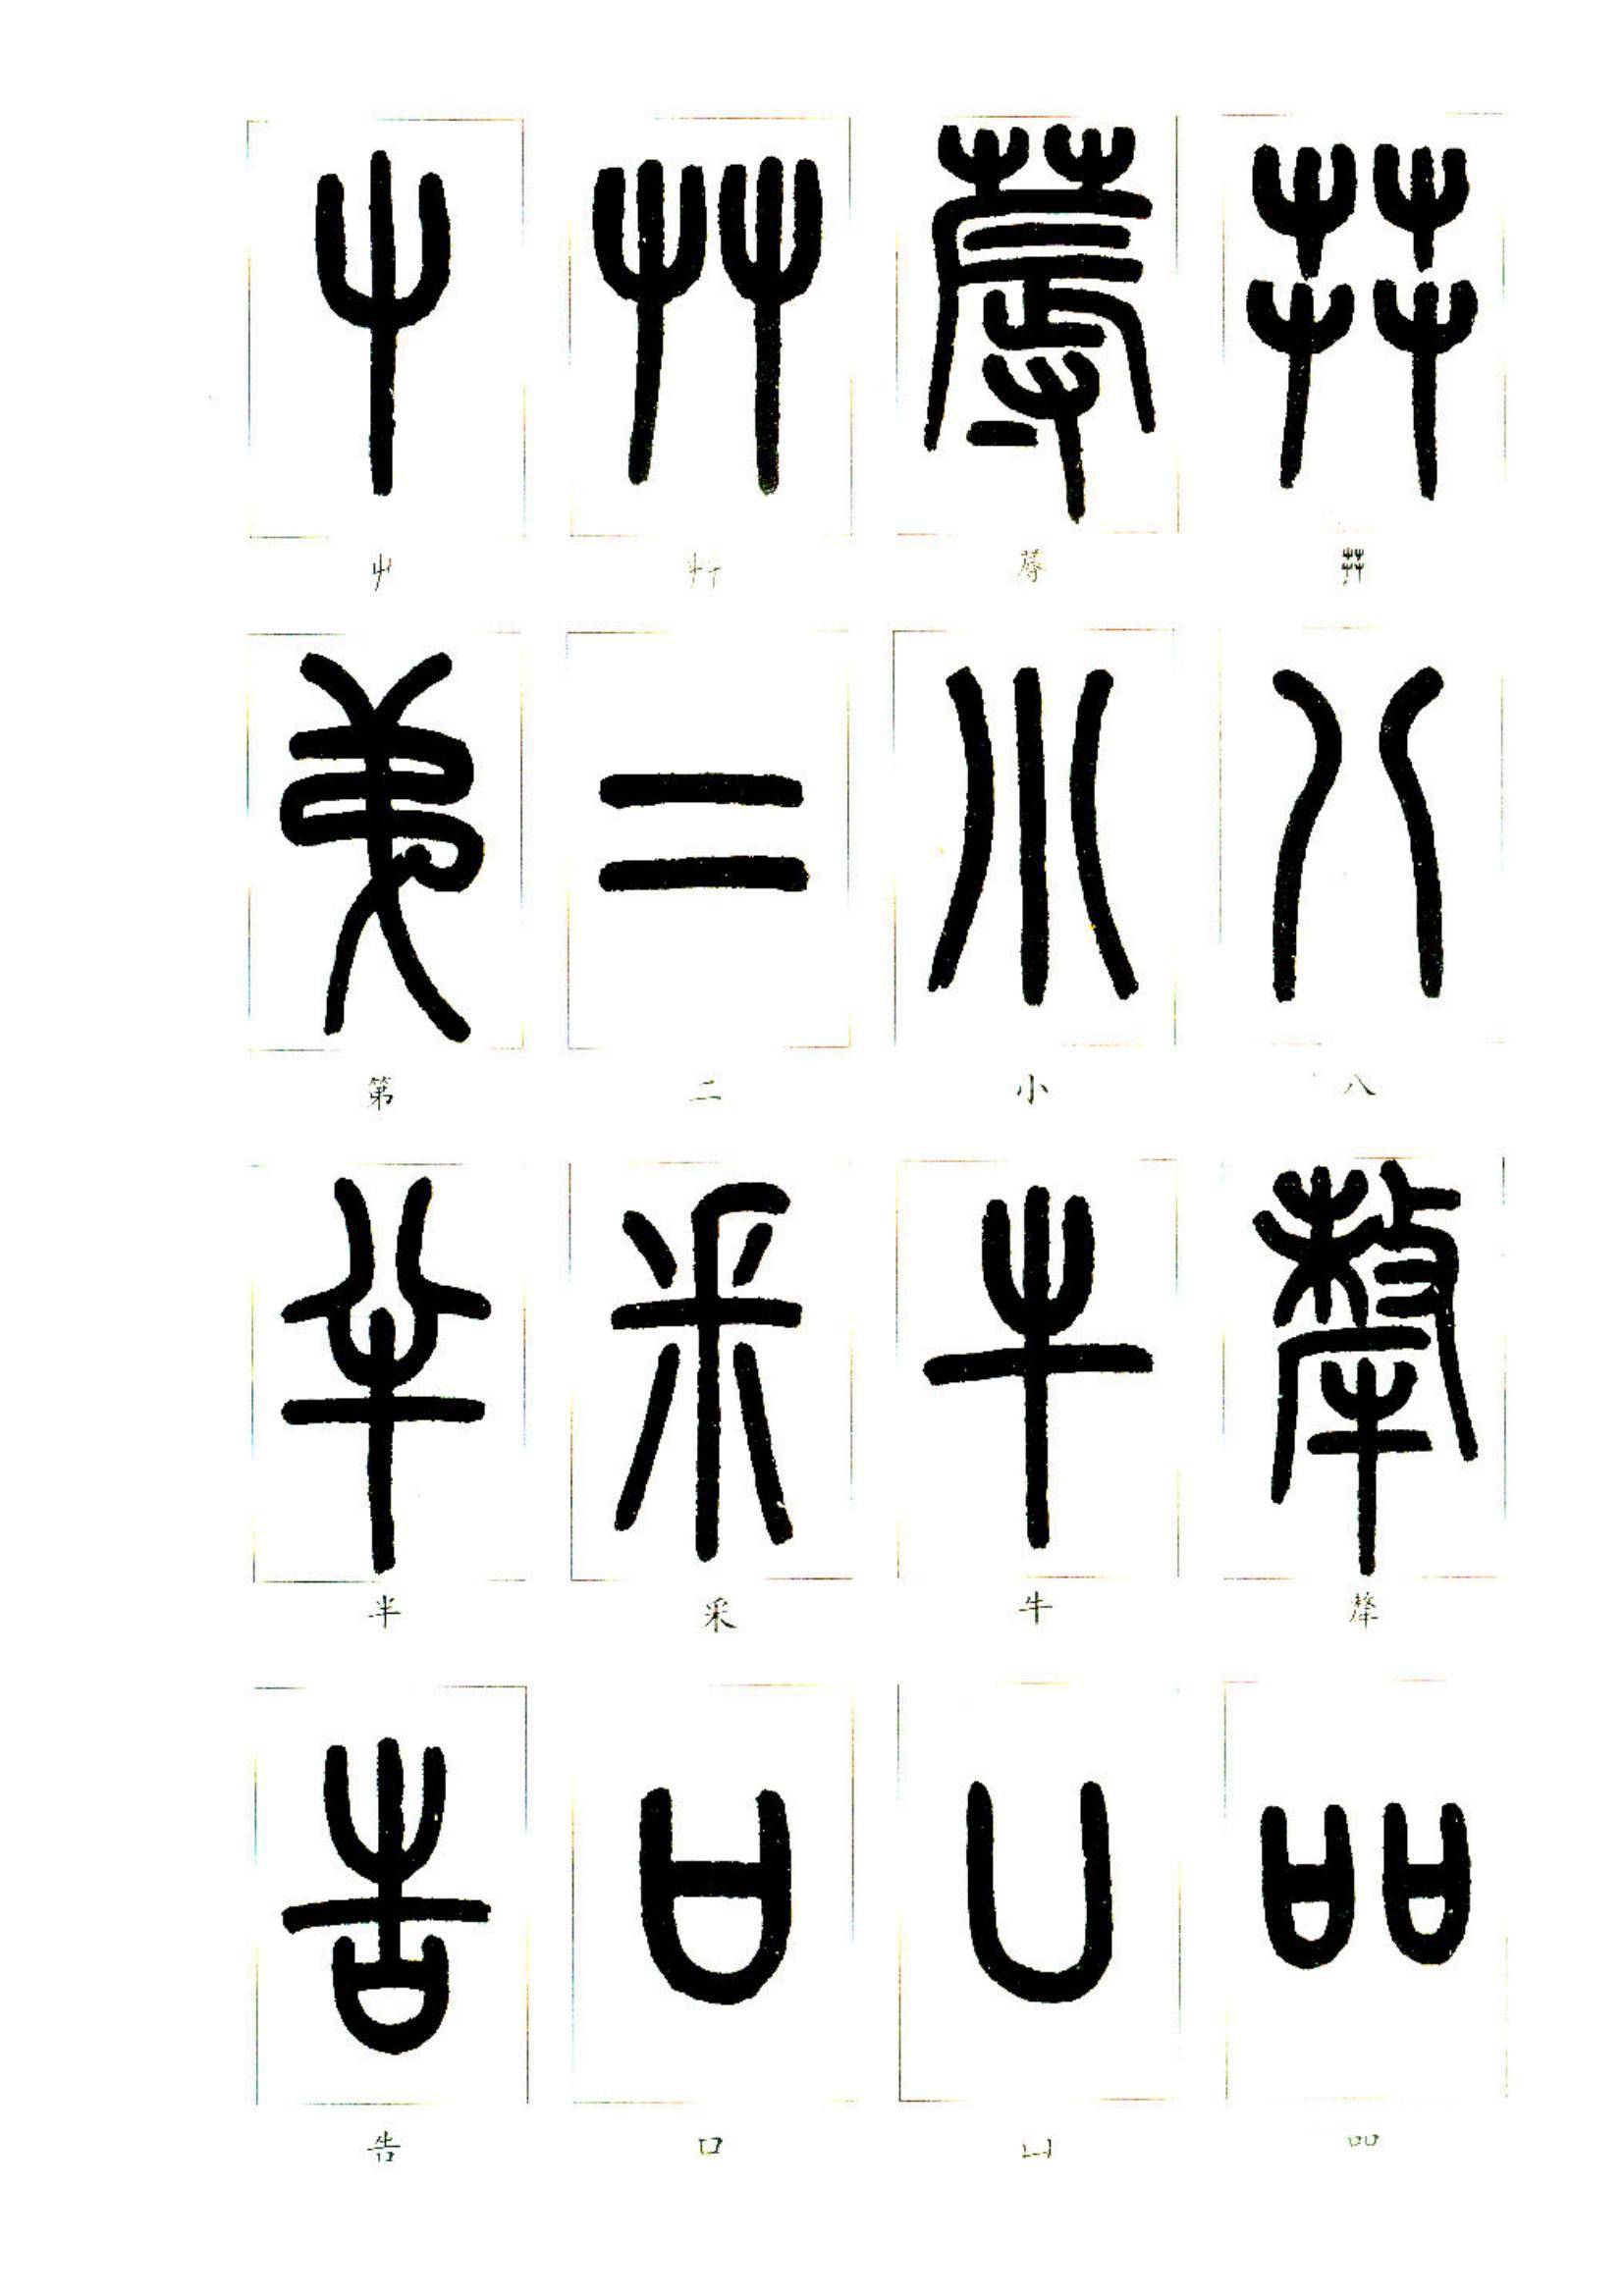 屮 艸 蓐 茻
第 二 小 八
半 釆 牛 犛
告 口 凵 吅